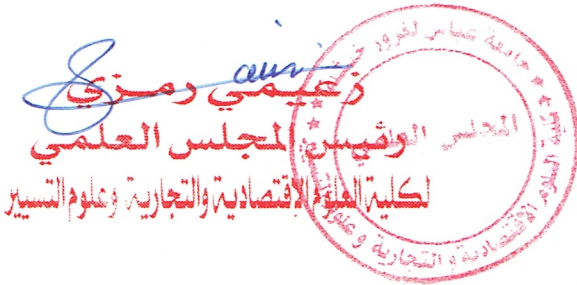 زعيمي رمزي
رئيس المجلس العلمي
لكلية العلوم الاقتصادية والتجارية وعلوم التسيير
جامعة عباس لغرور خنشلة
كلية العلوم الاقتصادية و التجارية و علوم
المجلس العلمي